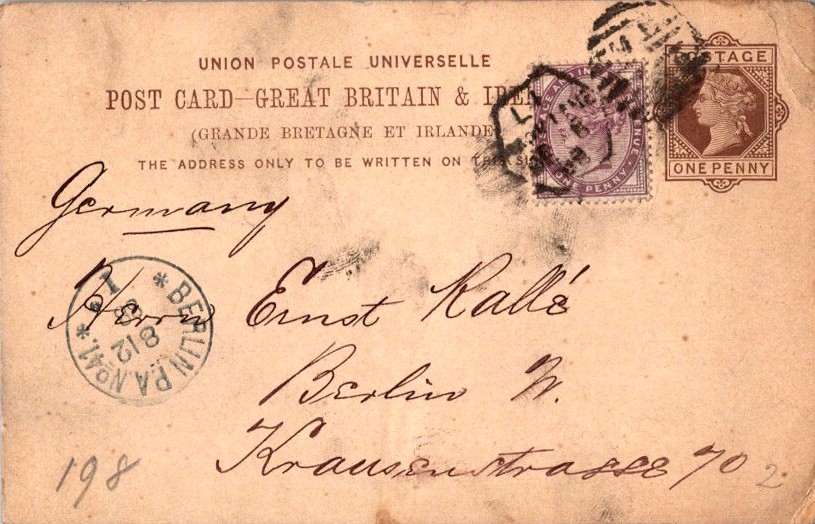 UNION POSTALE UNIVERSELLE
POST CARD—GREAT BRITAIN & IRE
(GRANDE BRETAGNE ET IRLANDE
THE ADDRESS ONLY TO BE WRITTEN ON THIS SI
POSTAGE
ONE PENNY
ONE PENNY
Germany
Herrn Ernst Kallé
Berlin W.
Krausenstrasse 70
* BERLIN P.A. No 41. *
8 12
198
2